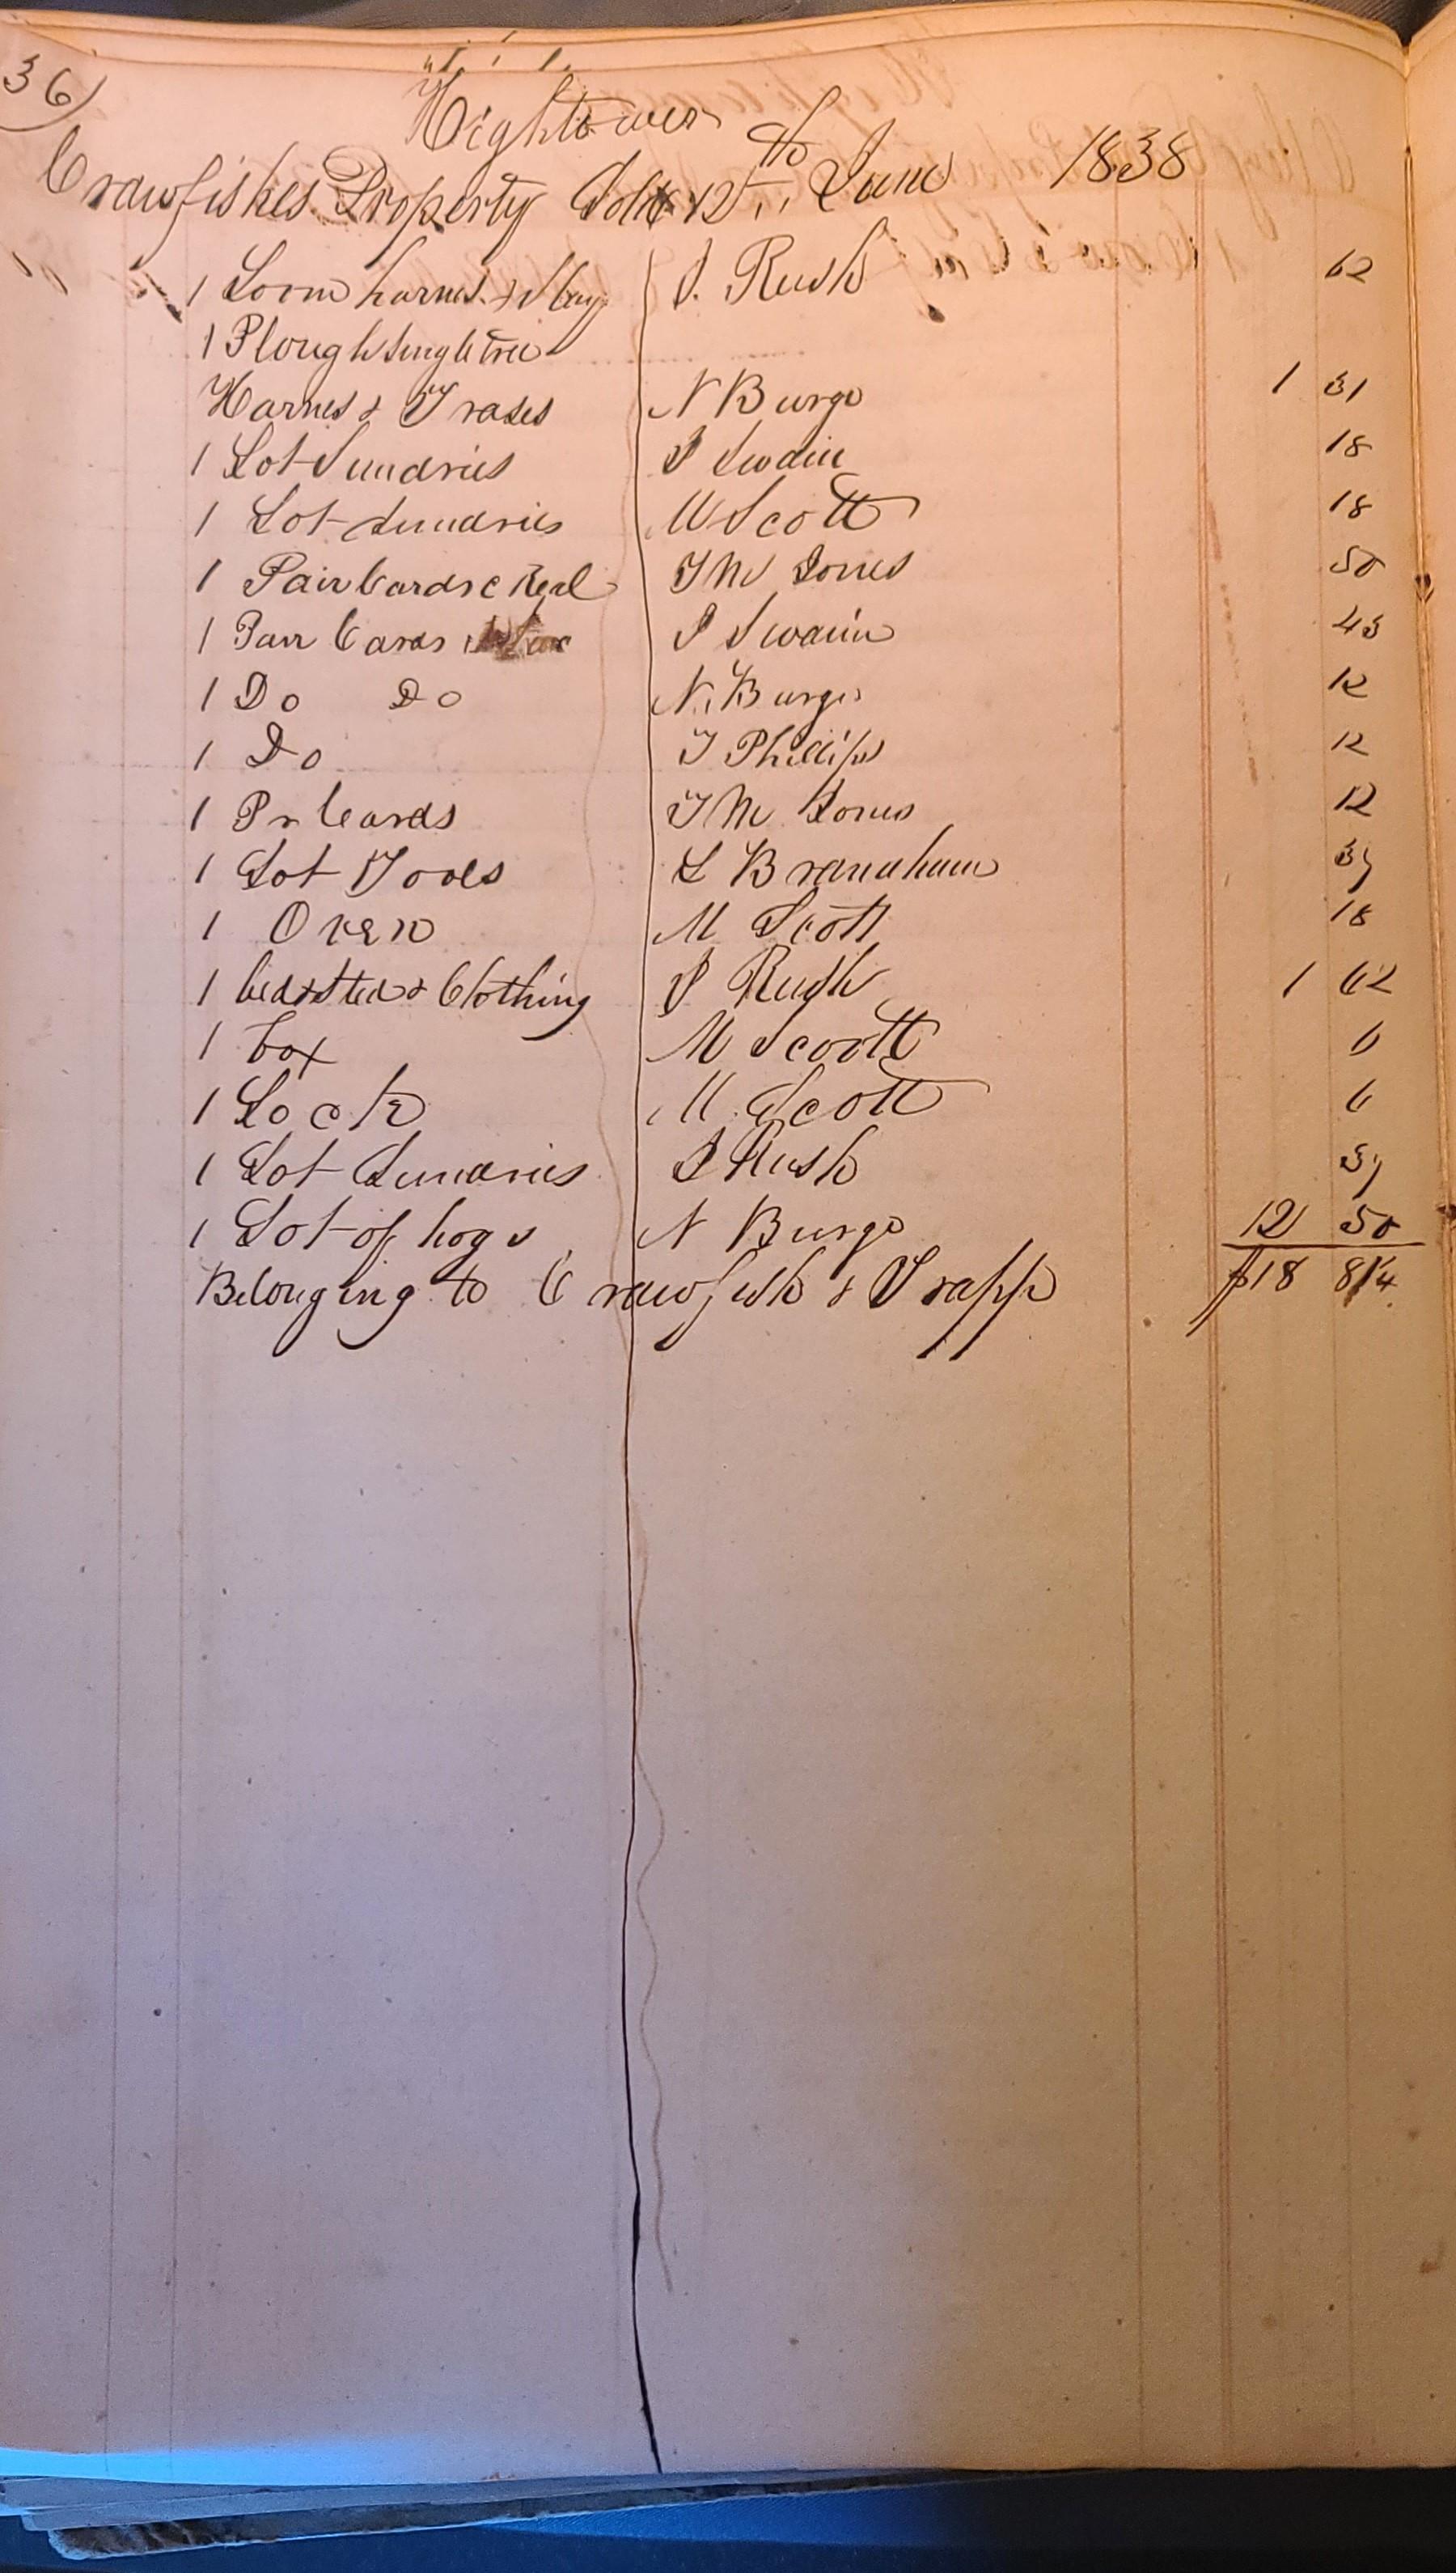 36)
Hightower
Crawfishes Property Sold 12th June 1838
1 Loom harnes & Slay J. Rush 62
1 Plough Singletree
Harnes & Trases N Burge 1 31
1 Lot Sundries J Swain 18
1 Lot Sundries M Scott 18
1 Pair Cards & Real T M Jones 50
1 Pair Cards J Swain 43
1 Do Do N. Burge 12
1 Do T Phillips 12
1 Pr Cards T M Jones 12
1 Lot Tools L Branaham 37
1 Oven M Scott 18
1 bedsted & Clothing J Rush 1 62
1 box M Scott 6
1 Lock M Scott 6
1 Lot Sundries J Rush 37
1 Lot of hogs N Burge 12 50
Belonging to Crawfish & Trapp $18 81/4